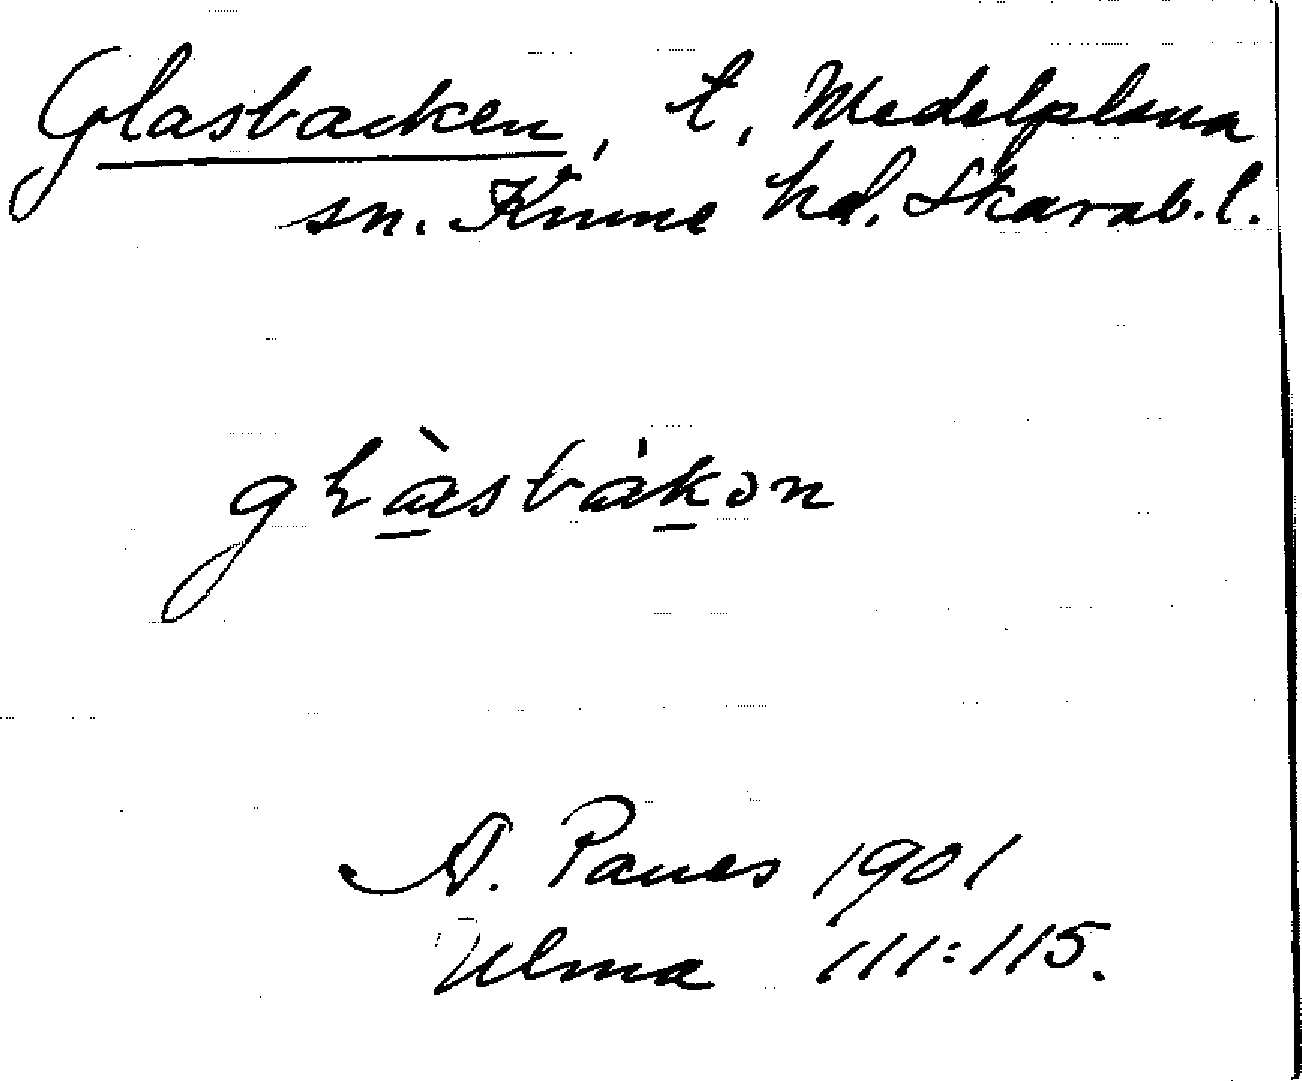 Glasbacken, t, Medelplana
sn. Kinne hd. Skarab.l.
gɫàsbák̠ən
A. Paues 1901
Ulma 111:115.